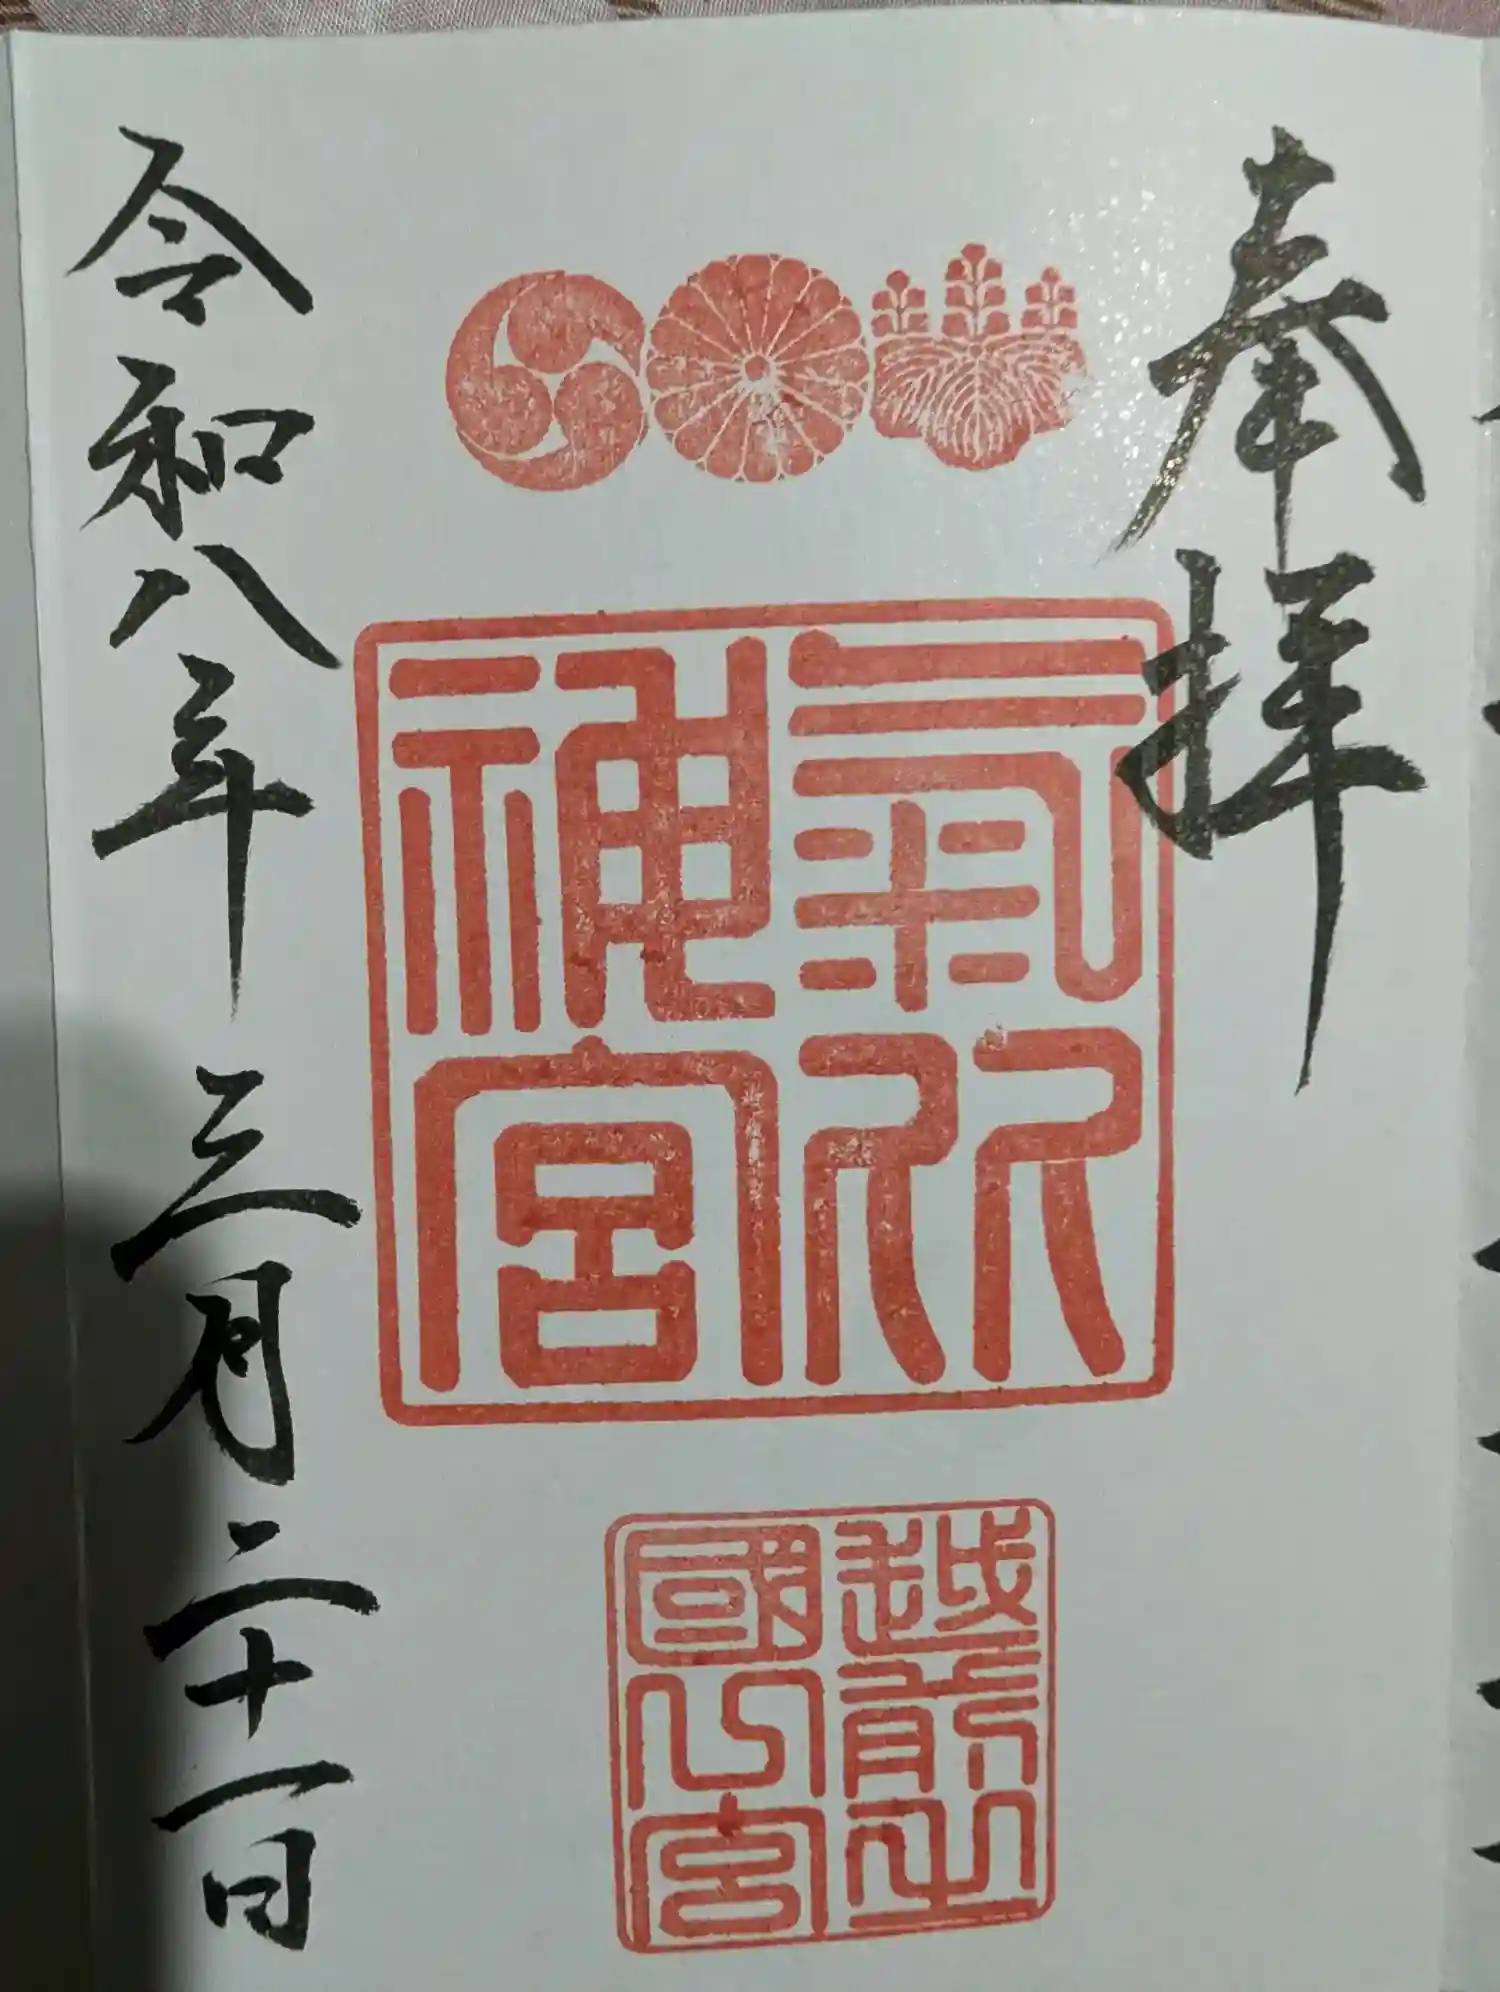 奉拝
氣比神宮
越前之國一宮
令和八年三月二十一日